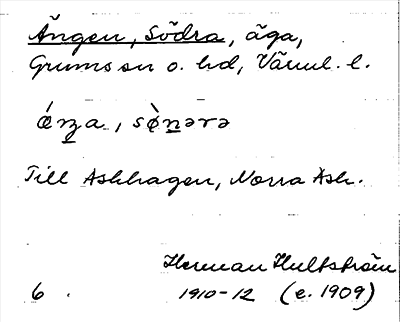 Ängen, Södra, äga,
Grums sn o. hd, Värml. l.
Till Askhagen, Norra Ash.
Herman Hultström
6. 1910-12 (e. 1909)